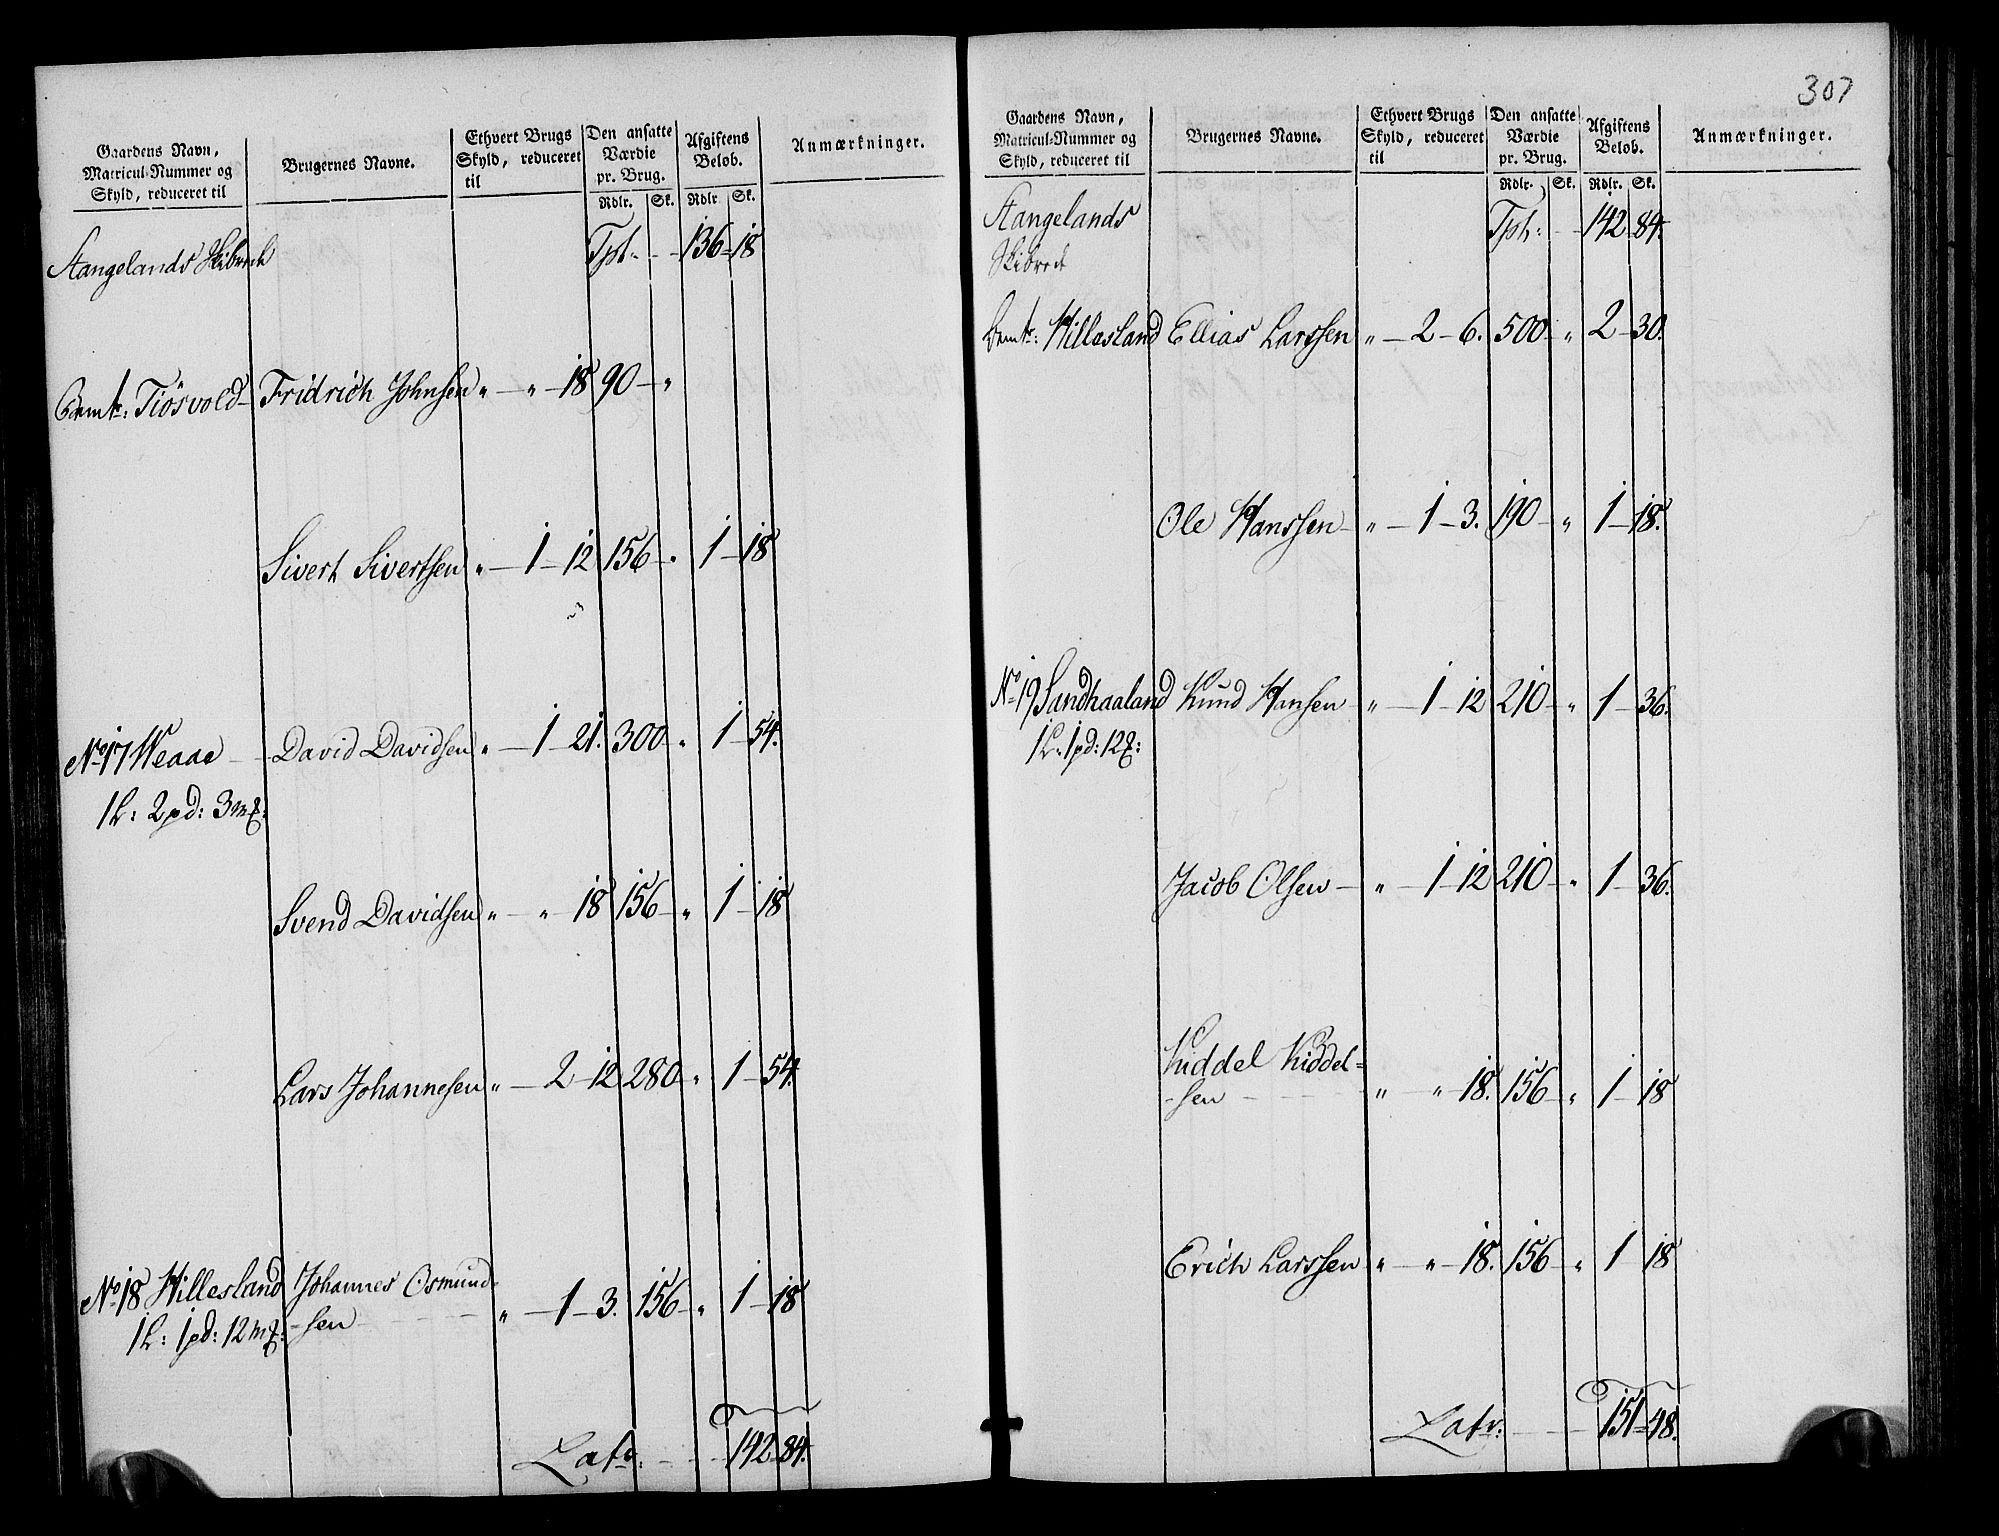 Gaardens Navn,
Matricul-Nummer og
Skyld, reduceret til
Brugernes Navne.
Ethvert Brugs
Skyld, reduceret
til
Den ansatte
Værdie
pr. Brug.
Rdlr. Sk.
Afgiftens
Beløb.
Rdlr Sk.
Anmærkninger.
Stangelands Skibrede Tpt: - - 136-18
Bemte: Tiösvold- Fridrich Johnsen " - " - 18 90 - "
Sivert Sivertsen " - 1 - 12 156 - " 1 - 18
No 17 Weaae - - David Davidsen " - 1 - 21. 300 - " 1 - 54.
1 L: 2 pd: 3 mk:
Svend Davidsen " - " 18 156 - " 1 - 18
Lars Johannesen " - 2 - 12 280 - " 1 - 54.
No 18 Hillesland Johannes Osmund-
1 L: 1 pd: 12 mk: -sen - - - - " - 1 - 3. 156 - " 1 - 18
Latr: - - - 142 - 84.
307
Gaardens Navn,
Matricul-Nummer og
Skyld, reduceret til
Brugernes Navne.
Ethvert Brugs
Skyld, reduceret
til
Den ansatte
Værdie
pr. Brug.
Rdlr. Sk.
Afgiftens
Beløb.
Rdlr. Sk.
Anmærkninger.
Stangelands
Skibrede
Tpt: - - 142 - 84.
Bemte: Hillesland Ellias Larssen " - 2 - 6. 500 - " 2 - 30.
Ole Hanssen - " - 1 - 3. 190 - " 1 - 18.
No 19 Sandhaaland Knud Hansen " - 1 - 12 210 - " 1 - 36.
1 L: 1 pd: 12 mk:
Jacob Olsen - " - 1 - 12 210 - " 1 - 36.
Kiddel Kiddel=
-sen - - - - " - " - 18. 156 - " 1 - 18
Erich Larssen " - " - 18. 156 - " 1 - 18
Latr: - - - 151 - 48.